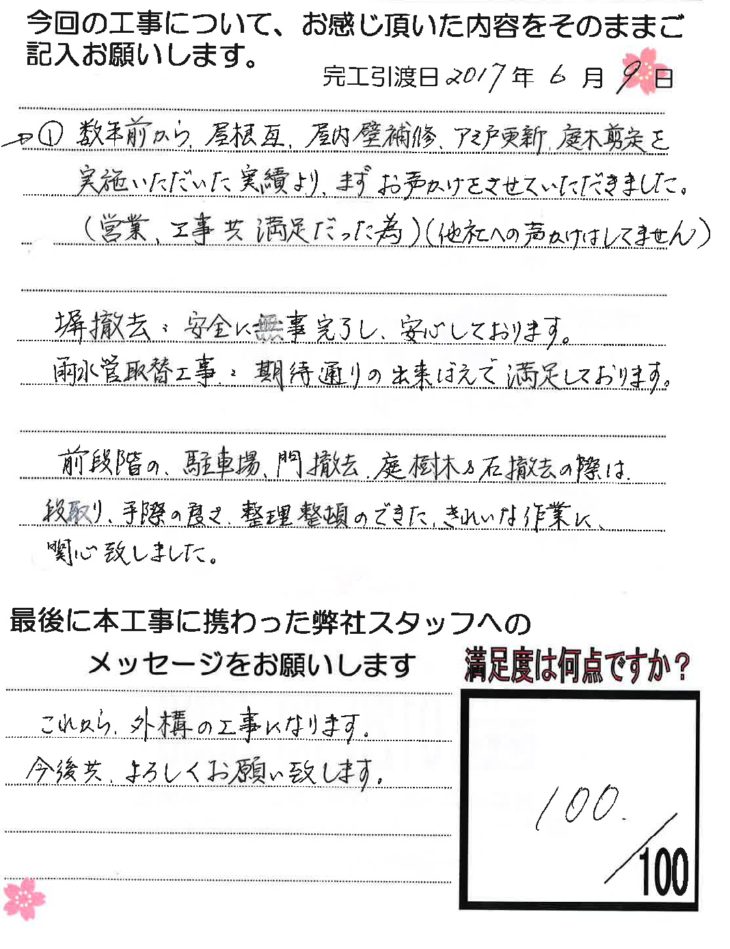 今回の工事について、お感じ頂いた内容をそのままご
記入お願いします。
完工引渡日2017年6月9日
→① 数年前から、屋根瓦、屋内壁補修、アミ戸更新、庭木剪定を
実施いただいた実績より、まずお声かけをさせていただきました。
(営業、工事共満足だった為)(他社への声かけはしてません)
塀撤去:安全に無事完了し、安心しております。
雨水管取替工事:期待通りの出来ばえで満足しております。
前段階の、駐車場、門撤去、庭樹木&石撤去の際は、
段取り、手際の良さ、整理整頓のできた、きれいな作業に、
関心致しました。
最後に本工事に携わった弊社スタッフへの
メッセージをお願いします
満足度は何点ですか?
これから、外構の工事になります。
今後共、よろしくお願い致します。
100.
/100